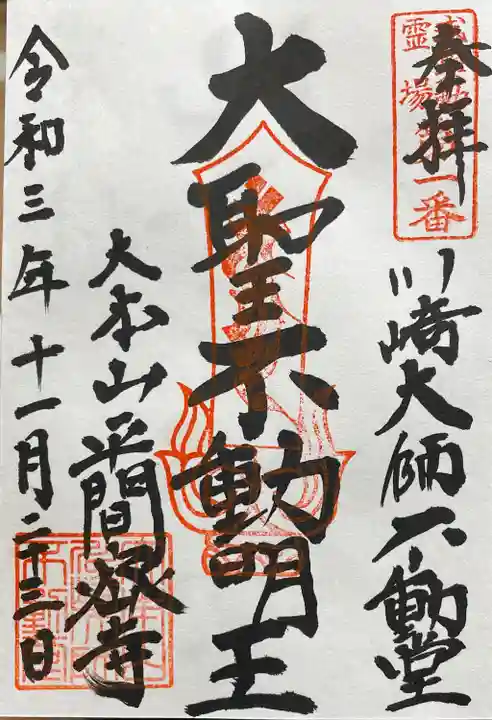 奉拝
霊場
一番
川崎大師不動堂
大聖不動明王
大本山平間寺
令和三年十一月二十三日